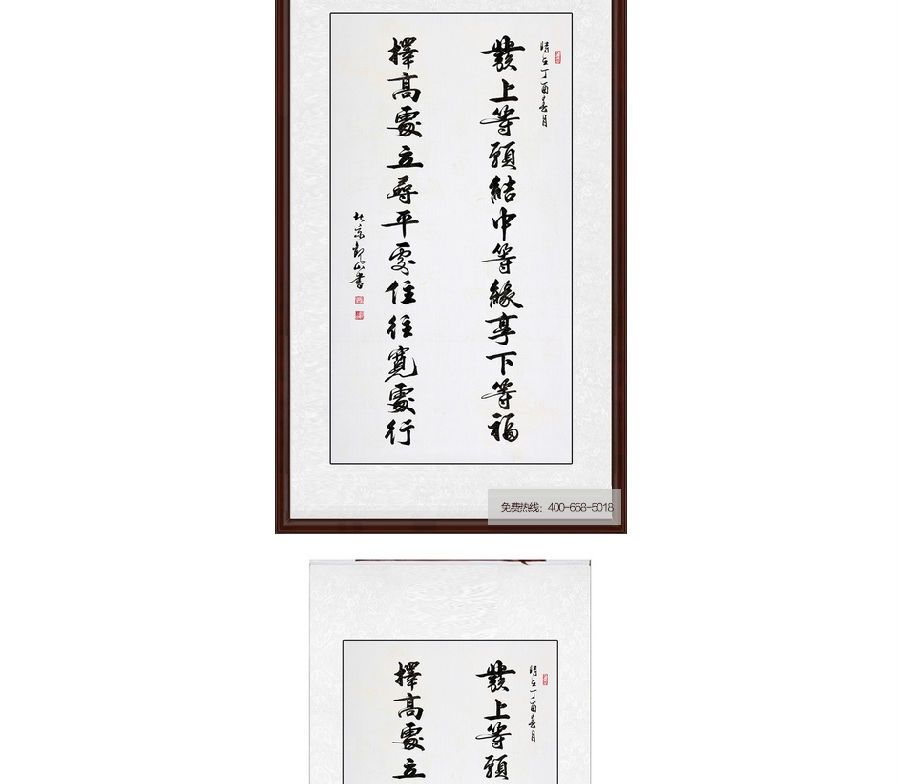 時在丁酉春月
發上等願結中等緣享下等福
擇高處立尋平處住往寬處行
北京觀山書
免费热线：400-658-5018
時在丁酉春月
發上等願
擇高處立